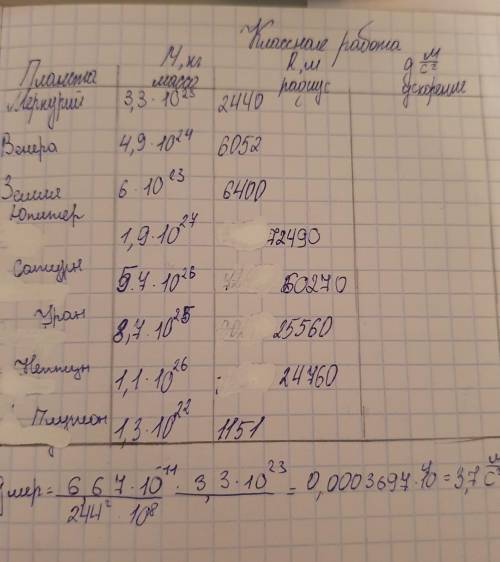 Классная работа
Планета М, кг масса R, м радиус g м/с² ускорение
Меркурий 3,3·10²³ 2440
Венера 4,9·10²⁴ 6052
Земля 6·10²³ 6400
Юпитер 1,9·10²⁷ 72490
Сатурн 5.7·10²⁶ 60270
Уран 8,7·10²⁵ 25560
Нептун 1,1·10²⁶ 24760
Плутон 1,3·10²² 1151
g мер = 6,67·10⁻¹¹ · 3,3·10²³ / 244² · 10⁸ = 0,0003697·10⁴ = 3,7 м/с²